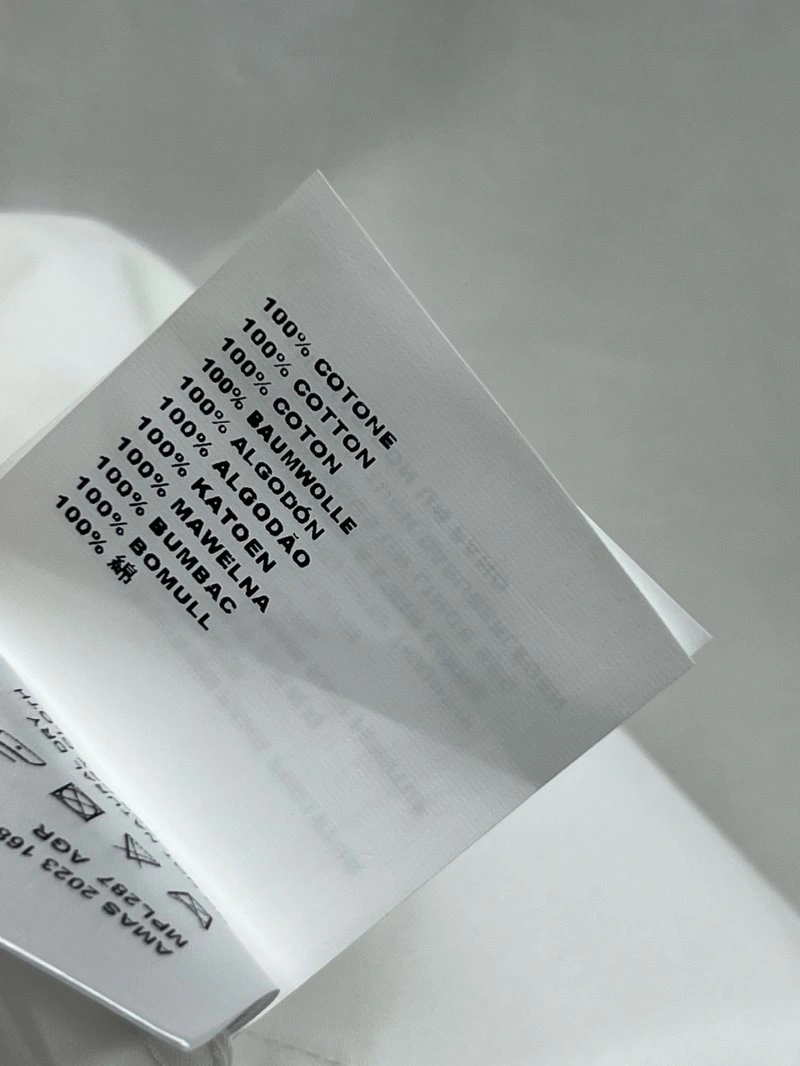 100% COTONE
100% COTTON
100% COTON
100% BAUMWOLLE
100% ALGODÓN
100% ALGODÃO
100% KATOEN
100% MAWEŁNA
100% BUMBAC
100% BOMULL
100% 綿
NATURAL DRY
CLOTH
AMAS 2023
MPL287 AGR